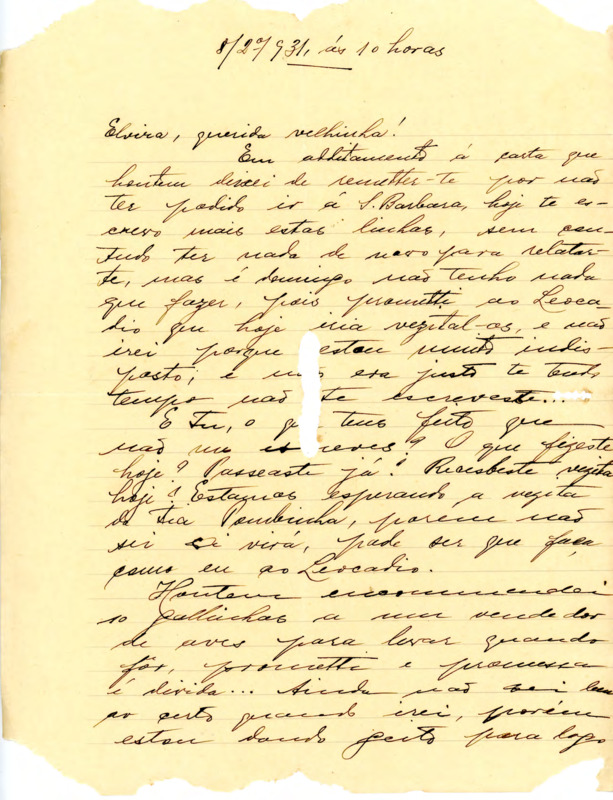 8/27/931, ás 10 horas
Elvira, querida velhinha!
Em additamento á carta que
hontem deixei de remetter-te por não
ter podido ir á S. Barbara, hoje te es-
crevo mais estas linhas, sem con-
tudo ter nada de novo para relatar-
te, mas é domingo não tenho nada
que fazer, pois prometti ao Leoca-
dio que hoje iria vezital-os, e não
irei porque estou muito indis-
posto; e não era justo te tendo
tempo não te escrevesse...
E Tu, o que tens feito que
não me escreves? O que fizeste
hoje? Passeaste já? Recebeste vezita
hoje? Estamos esperando a vezita
da Tia Pombinha, porem não
sei si virá, pode ser que faça
como eu ao Leocadio.
Hontem encommendei
10 gallinhas a um vendedor
de aves para levar quando
fôr, prometti e promessa
é divida... Ainda não sei bem
ao certo quando irei, porém
estou dando geito para logo